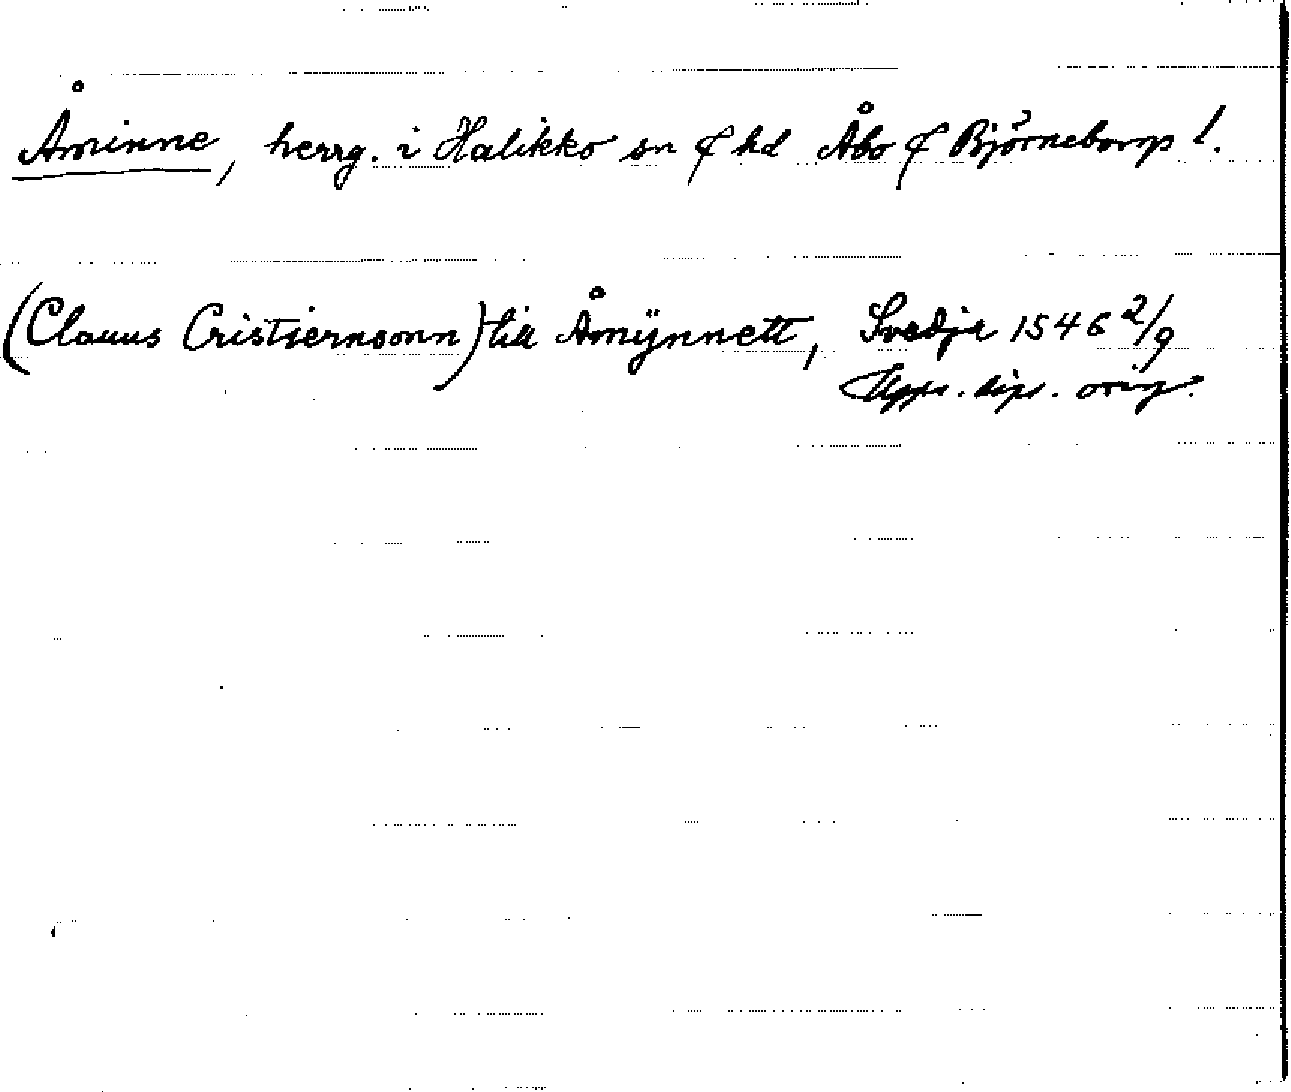 Åminne, herrg. i Halikko sn & hd Åbo & Björneborgs l.
(Clauus Cristiernsonn) till Åmÿnnett, Svedja 1546 2/9
Upps. dipl. orig.